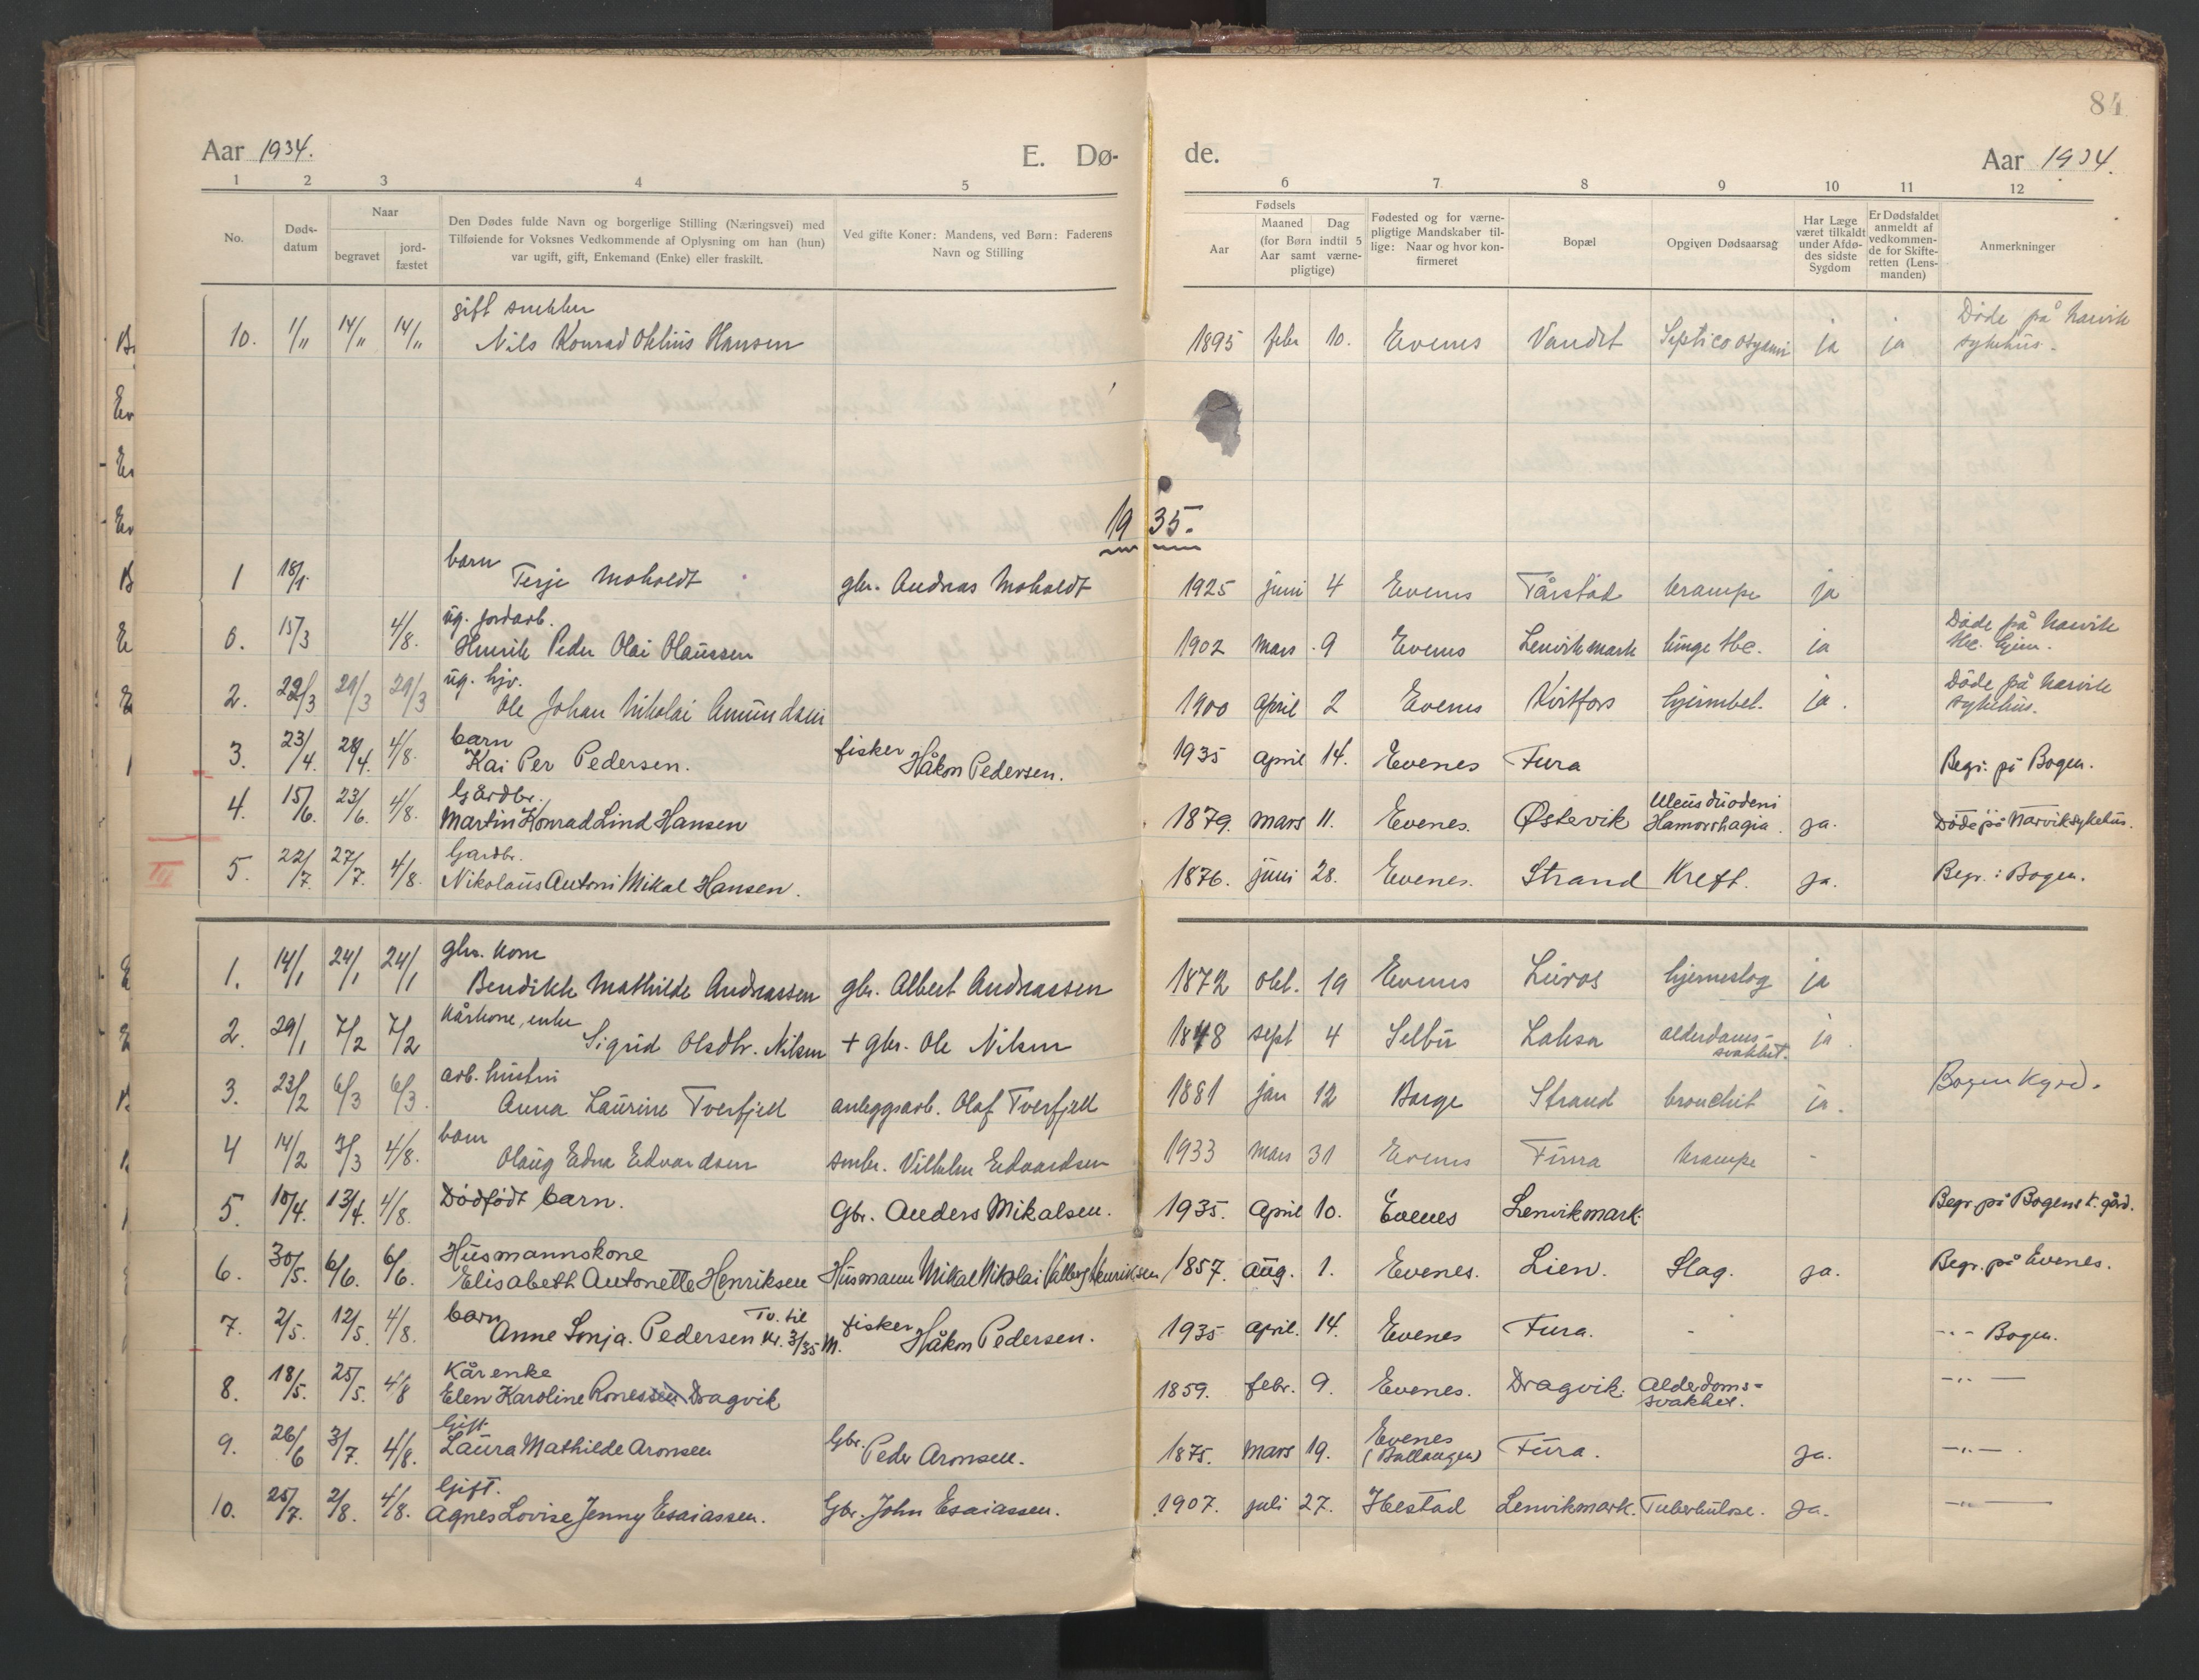 84
Aar 1934. E. Dø- de. Aar 1934.
1 2 3 4 5 6 7 8 9 10 11 12
No.
Døds-
datum
Naar
begravet
jord-
fæstet
Den Dødes fulde Navn og borgerlige Stilling (Næringsvei) med
Tilføiende for Voksnes Vedkommende af Oplysning om han (hun)
var ugift, gift, Enkemand (Enke) eller fraskilt.
Ved gifte Koner: Mandens, ved Børn: Faderens
Navn og Stilling
Fødsels
Aar
Maaned Dag
(for Børn indtil 5
Aar samt værne-
pligtige)
Fødested og for værne-
pligtige Mandskaber til-
lige: Naar og hvor kon-
firmeret
Bopæl
Opgiven Dødsaarsag
Har Læge
været tilkaldt
under Afdø-
des sidste
Sygdom
Er Dødsfaldet
anmeldt af
vedkommen-
de for Skifte-
retten (Lens-
manden)
Anmerkninger
gift snekker Døde på Narvik
10. 1/11 14/11 14/11 Nils Konrad Hansen 1895 febr 10. Evenes Vandet ja ja sykehus.
1935.
barn
1 18/1. Terje Moholdt gbr. Andreas Moholdt 1925 juni 4 Evenes Tårstad krampe ja
ug. jordarb. Døde på Narvik
6. 15/3 4/8. Henrik Peder Olai Olaussen 1902 mars 9 Evenes Lenvikmark lunge tbc. ja tbc. hjem.
ug. hjv. Døde på Narvik
2. 22/3 29/3 29/3 Ole Johan Nikolai Amundsen 1900 april 2 Evenes Kvitfors ja. sykehus.
barn fisker
3. 23/4. 28/4. 4/8. Kai Per Pedersen. Håkon Pedersen. 1935 april 14. Evenes Fura Begr. på Bogen.
Gårdbr. Ulcus duodeni
4. 15/6. 23/6. 4/8. Martin Konrad Lind Hansen 1879. mars 11. Evenes. Østervik Hamorrhagia. ja. Døde på Narvik sykehus.
Gardbr.
5. 22/7. 27/7. 4/8. Nikolaus Antoni Mikal Hansen. 1876. juni 28. Evenes. Strand Kreft. ja. Begr. i Bogen.
gbr. kone
1. 14/1 24/1 24/1 Bendikte Mathilde Andreassen gbr. Albert Andreassen 1872 okt. 19 Evenes Liiros hjerneslag ja
Kårkone, enke
2. 29/1 7/2 7/2 Sigrid Olsdtr. Nilsen + gbr. Ole Nilsen 1848 sept 4 Selbu Laksa alderdoms-
svakhet. ja.
arb. hustru
3. 23/2 6/3 6/3. Anna Laurine Tverfjell anleggsarb. Olaf Tverfjell 1881 jan 12 Borge Strand bronchit ja. Bogen kgrd.
barn
4 14/2 3/3 4/8. Olaug Edna Edvardsen småbr. Vilhelm Edvardsen 1933 mars 31 Evenes Fura krampe -
5. 10/4. 13/4. 4/8. Dödfödt barn. Gbr. Anders Mikalsen. 1935. April 10. Evenes Lenvikmark. Begr. på Bogens k. gård.
Husmannskone
6. 30/5. 6/6. 6/6. Elisabeth Antonette Henriksen Husmann Mikal Nikolai Valberg Henriksen 1857. aug. 1. Evenes. Lien. Slag. ja. Begr. på Evenes.
barn Tv. til fisker
7. 2/5. 12/5. 4/8. Anne Sonja. Pedersen nr. 3/35 M. Håkon Pedersen. 1935 april. 14. Evenes Fura. - -"- Bogen.
Kårenke
8. 18/5. 25/5. 4/8 Elen Karoline Ronessen Dragvik 1859. febr. 9. Evenes. Dragvik. Alderdoms-
svakhet. -"-
Gift. Gbr.
9. 26/6 3/7. 4/8. Laura Mathilde Aronsen Peder Aronsen. 1875. mars 19. Evenes
(Ballangen) Fura. ja. -"-.
Gift.
10. 25/7. 2/8. 4/8. Agnes Lovise Jenny Esaiassen. Gbr. John Esaiassen. 1907. juli 27. Hestad Lenvikmark. Tuberkulose. ja. -"-